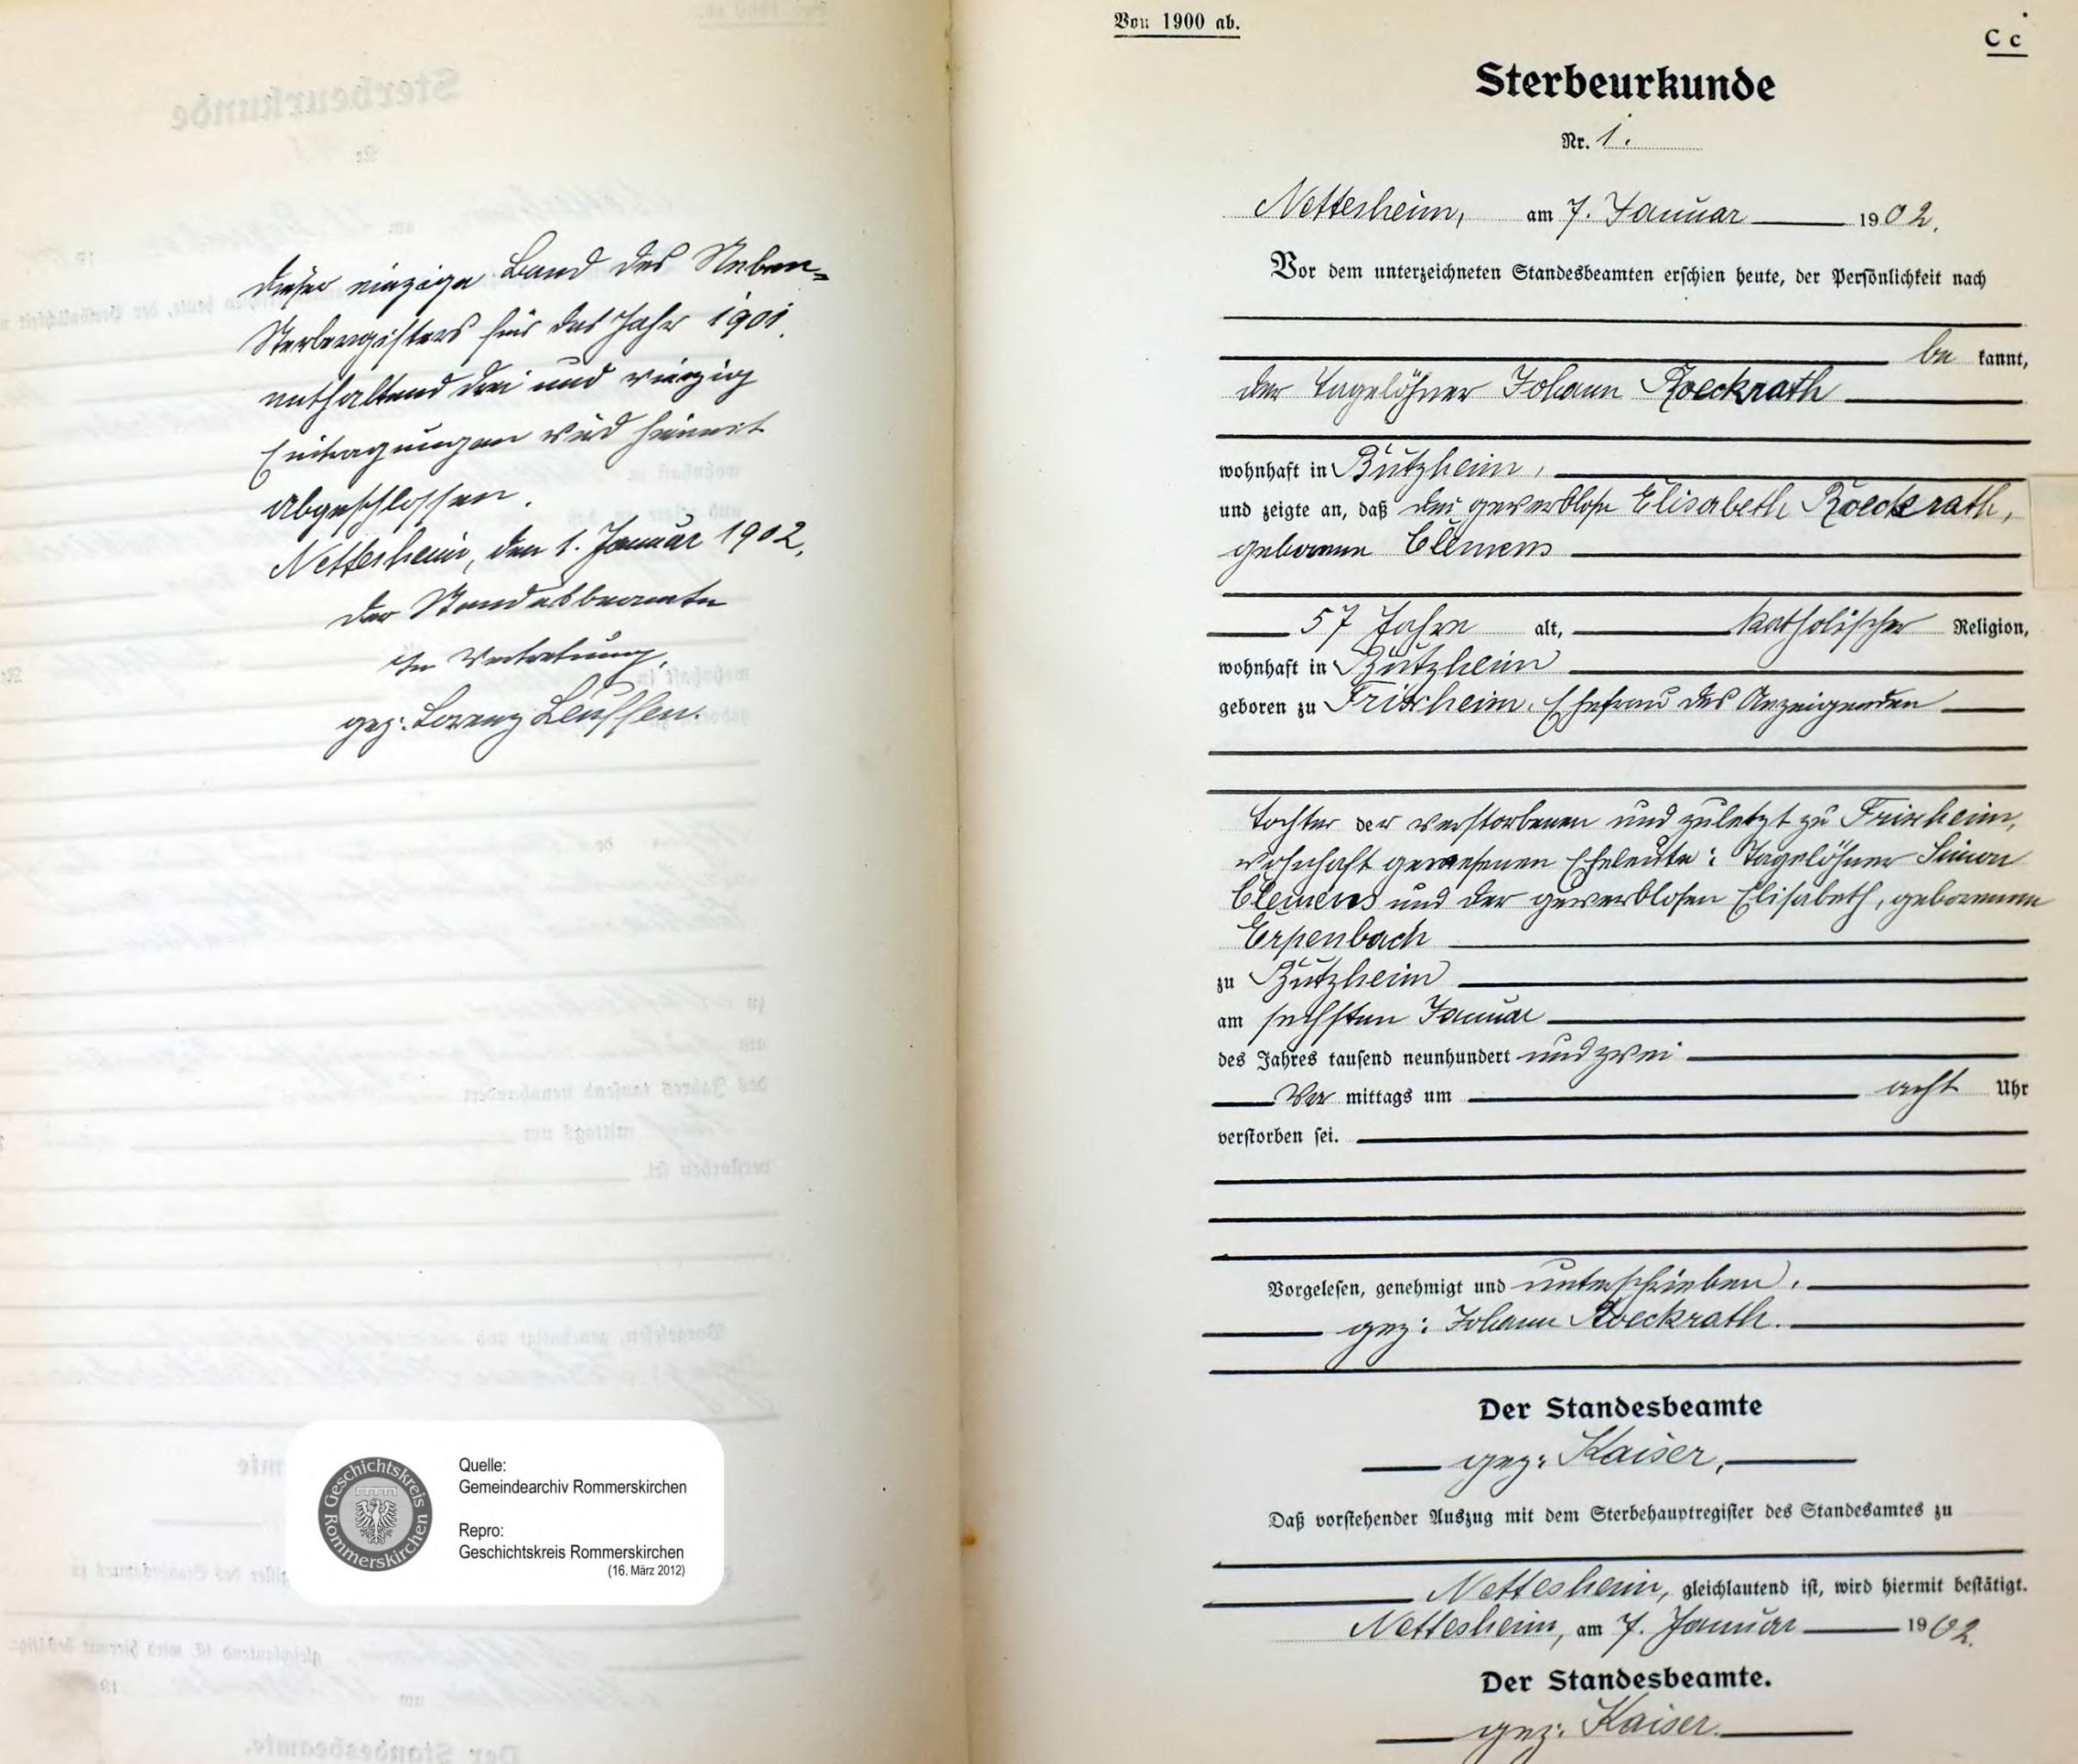 Dieser einzige Band des Neben-
Sterberegisters für das Jahr 1901
enthaltend drei und vierzig
Eintragungen wird hiermit
abgeschlossen.
Nettesheim, den 1. Januar 1902.
Der Standesbeamte
In Vertretung,
gez: Lorenz Leuffen.
Quelle:
Gemeindearchiv Rommerskirchen
Repro:
Geschichtskreis Rommerskirchen
(16. März 2012)
Geschichtskreis Rommerskirchen
Von 1900 ab.
C c
Sterbeurkunde
Nr. 1.
Nettesheim, am 7. Januar 1902.
Vor dem unterzeichneten Standesbeamten erschien heute, der Persönlichkeit nach
be kannt,
der Tagelöhner Johann Roeckrath
wohnhaft in Bützheim,
und zeigte an, daß die gewerblose Elisabeth Roeckrath,
geborenen Clemens
57 Jahre alt, katholischer Religion,
wohnhaft in Bützheim
geboren zu Frixheim, Ehefrau des Anzeigenden
Tochter der verstorbenen und zuletzt zu Frixheim,
wohnhaft gewesenen Eheleute: Tagelöhner Simon
Clemens und der gewerblosen Elisabeth, geborenen
Erpenbach
zu Bützheim
am sechsten Januar
des Jahres tausend neunhundert und zwei
Vor mittags um acht Uhr
verstorben sei.
Vorgelesen, genehmigt und unterschrieben.
gez: Johann Roeckrath.
Der Standesbeamte
gez: Kaiser,
Daß vorstehender Auszug mit dem Sterbehauptregister des Standesamtes zu
Nettesheim, gleichlautend ist, wird hiermit bestätigt.
Nettesheim, am 7. Januar 1902.
Der Standesbeamte.
gez: Kaiser.